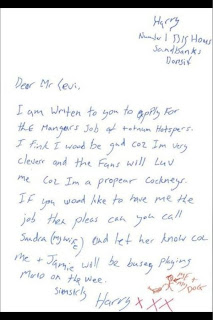 Harry
Number 1 Big House
Sandbanks
Dorsit
Dear Mr Levi.
I am writen to you to apply For
the Mangers Job of totnum Hotspers.
I Fink I woud be gud coz Im very
clever and the Fans will Luv
me coz Im a propear cockneys.
IF you woud like to have me the
job then pleas can you call
Sandra (my wife) and let her know coz
me + Jamie will be busey playing
Mario on the wee.
Sinsirly
Harry xxx